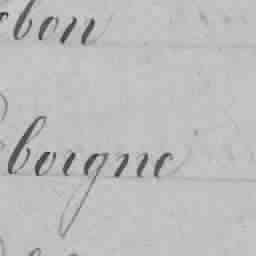 bon
borgne